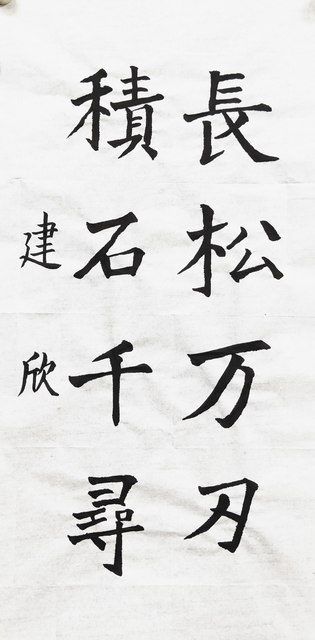 長松万刃
積石千尋
建欣